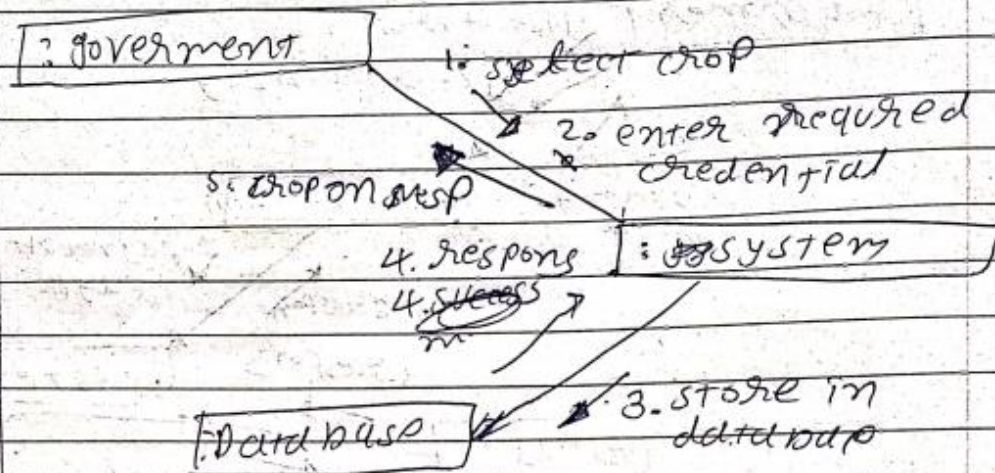 : goverment
1. select crop
2. enter required
credential
5. crop on resp
4. respons
: system
4. sucess
3. store in
:Database